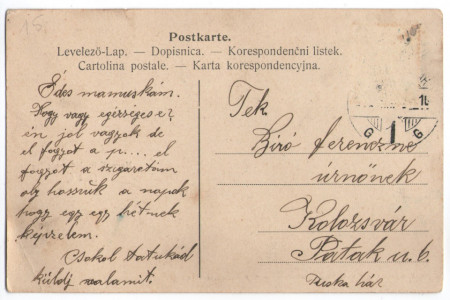 Postkarte.
Levelező-Lap. — Dopisnica. — Korespondenčni listek.
Cartolina postale. — Karta korespondencyjna.
Édes mamuskám.
Hogy vagy egésséges e?
én jol vagyok de
el fogyot a p.... el
fogyot a szigarétám
oly hosszuk a napok
hogy egy egy hétnek
képzelem.
Csokol tatukád
küldj valamit.
Tek
Biró Ferenczné
úrnőnek
Kolozsvár
Patak u. 6.